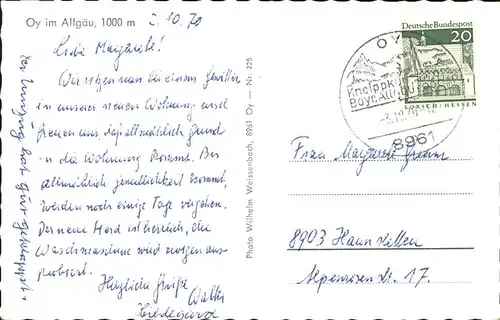 Oy im Allgäu, 1000 m
2.10.70
Liebe Margarete!
Wir sitzen nun bei einem Gewitter
in unserer neuen Wohnung und
freuen uns, daß allmählich Grund
in die Wohnung kommt. Bis
allmählich Gemütlichkeit kommt,
werden noch einige Tage vergehen.
Der neue Herd ist herrlich, die
Waschmaschine wird morgen aus-
probiert.
Herzliche Grüße
Walter
Hildegard
Der Umzug hat gut geklappt.
Photo Wilhelm Weissenbach, 8961 Oy — Nr. 225
Deutsche Bundespost
20
LORSCH/HESSEN
OY
Kneippk
Bayr. Allgäu
8961
Frau Margarete
8903 Haunstetten
Alpenrosenstr. 17.